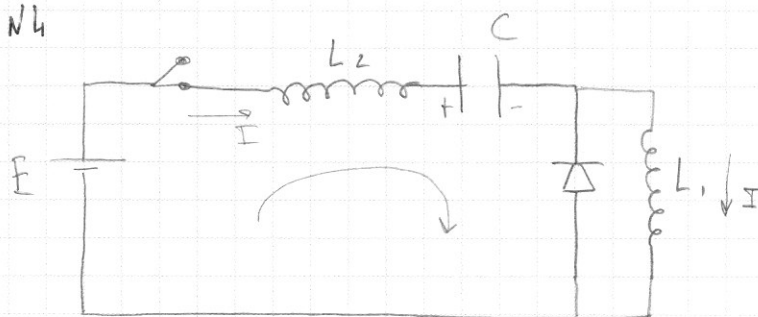 N4
L2
C
+ -
I
E
L1
I